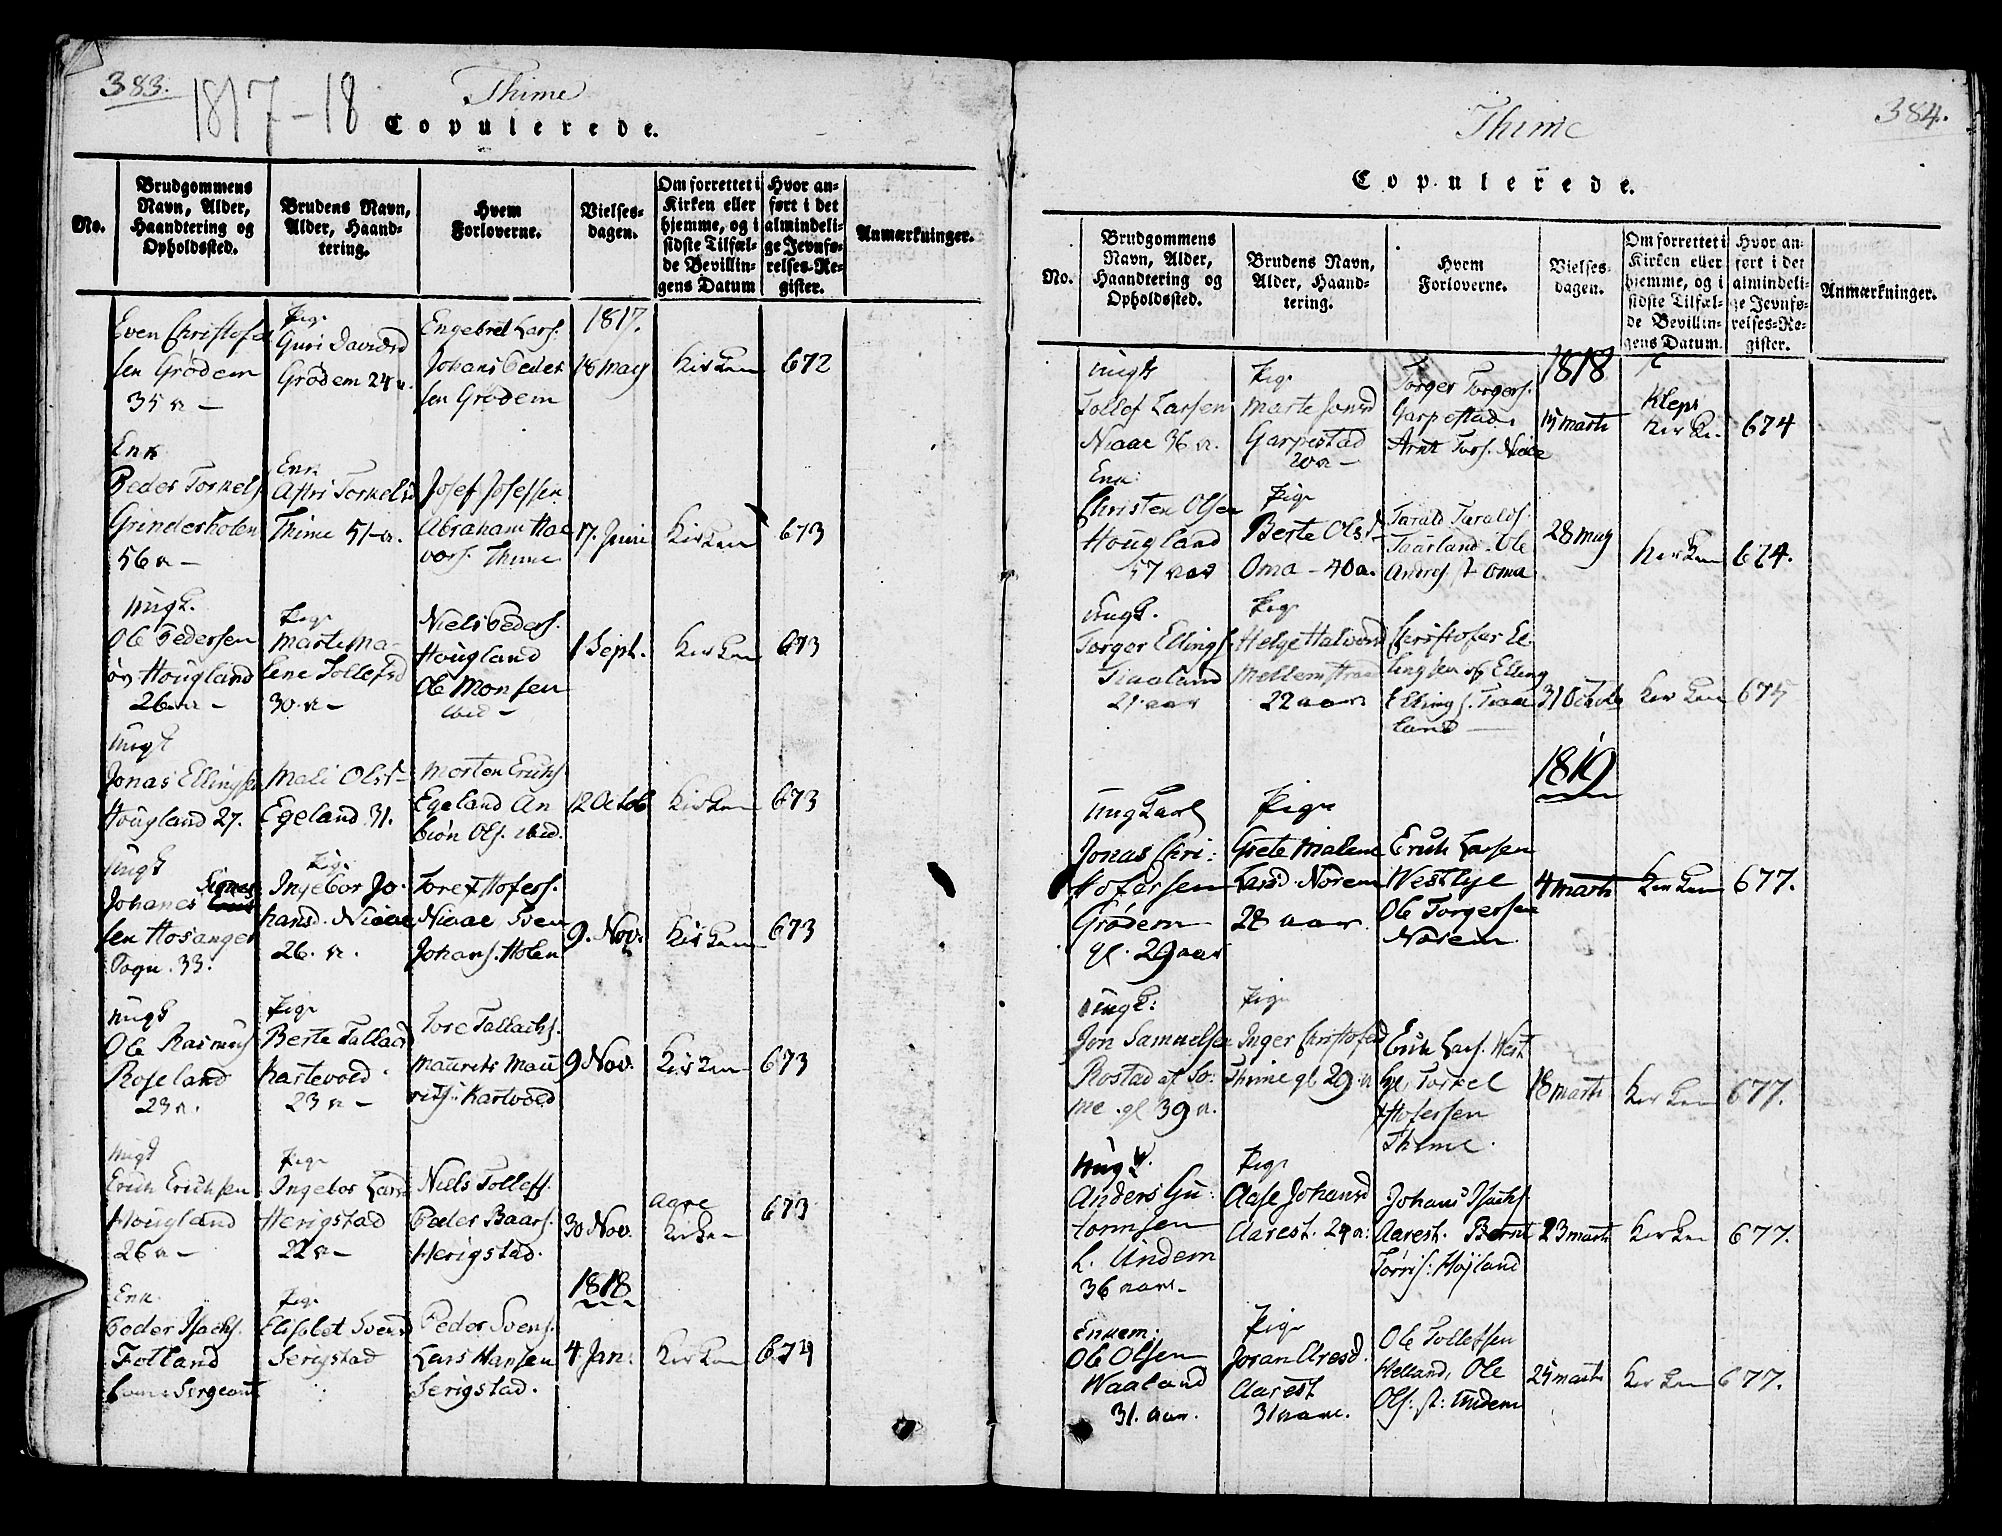 383.
1817-18
Thime
Copulerede.
No.
Brudgommens Navn, Alder, Haandtering og Opholdssted.
Brudens Navn, Alder, Haandtering.
Hvem Forloverne.
Vielsesdagen.
Om forrettet i Kirken eller hjemme, og i sidste Tilfælde Bevillingens Datum
Hvor anført i det almindelige Jevnførelses-Register.
Anmærkninger.
Even Christofer
sen Grødem
35 a -
Pige
Guri Davidsd
Grødem 24 a.
Engebret Lars.
Johans Peder
sen Grødem
1817.
18 May
Kirken
672
Enk
Peder Torkels
56 a -
Enk
Astri Torkelsd
Thime 51 a.
Josef Josefsen
Abraham Hal
vors. Thime
17. Juni
Kirken
673
ungk.
Ole Pedersen
Hougland
26 a -
Pige
Marte Ma-
lene Tollefsd
30 a -
Niels Peders.
Hougland
Ole Monsen
ibid -
1 Sept.
Kirken
673
ungk
Jonas Ellingsen
Hougland 27.
Mali Olsd
Egeland. 31.
Morten Erichs
Egeland An
biøn Ols. ibid.
12 Octob
Kirken
673
ungk
Johanes
sen Hosanger
Sogn. 33.
Pige
Ingebor Jo-
hansd. Niaae
26. a.
Tore
Niaae Sven
Johans. Holen
9. Nov.
Kirken
673
ungk
Ole Rasmus
Roseland
23 a.
Pige
Berte Tallacsd
Kartevold
23 a -
Tore Tallachs.
Maurits Mau
rits: Kartvold
9 Nov.
Kirken
673
ungk
Erich Erichsen
Hougland
26 a -
Pige
Ingebor Larsd
Herigstad
22 a -
Niels Tollefs.
Peder Baars.
Herigstad.
30 Nov.
aare
Kirken
673
Enk.
Peder Isachs.
Fotland
Sergeant
Pige
Elisabet Svensd
Serigstad
Peder Svens.
Lars Hansen
Serigstad.
1818
4 Jan:
Kirken
674
Thime
384.
Copulerede.
No.
Brudgommens Navn, Alder, Haandtering og Opholdssted.
Brudens Navn, Alder, Haandtering.
Hvem Forloverne.
Vielsesdagen.
Om forrettet i Kirken eller hjemme, og i sidste Tilfælde Bevillingens Datum.
Hvor anført i det almindelige Jevnførelses-Register.
Anmærkninger.
ungk
Tollef Larsen
Niaae 36 a.
Pige
Marte Jonsd
Garpestad
20 a -
Torger Torgers.
Garpestad
Arnt Tors. Niaae
1818
15 marts
Kleps
Kirke.
674
Enk:
Christen Olsen
Hougland
57 aar
Pige
Berte Olsd
Oma - 40 a.
Tarald Taralds
Taarland. Ole
Andres. st Oma
28 may
Kirken
674.
ungk.
Torger Ellings
Tiaaland
Pige
Helge Halvorsd
Mellemstrand
22 aar
Christofer El-
lingsen og Elling
Ellings. Tiaa
land
31 Octob
Kirken
675
1819
ungkarl
Jonas Chri:
stofersen
Grødem
gl. 29 aar
Pige
Grete Malene
Larsd. Norem
28 aar.
Erich Larsen
Westlye
Ole Torgersen
Norem
4 marts
Kirken
677.
ungk:
Jon Samuelsen
Rostad af So:
me. gl 39 a.
Pige
Inger Christofersd
Thime gl 29 a
Erich Lars. West
lye, Torkel
stofersen
Thime.
18 marts
Kirken
677.
ungk.
Anders Gu:
tormsen
L. Undem
36 aar.
Pige
Aase Johansd
Aarest. 24 a:
Johans Isachs
Aarest. Bernt
Tørris: Højland
23 marts
Kirken
677.
Enkem:
Ole Olsen
Waaland
31. aar.
Pige
Joran Aresd.
Aarest
31 aar.
Ole Tollefsen
Helland, Ole
Ols: st: Undem
25 marts
Kirken
677.